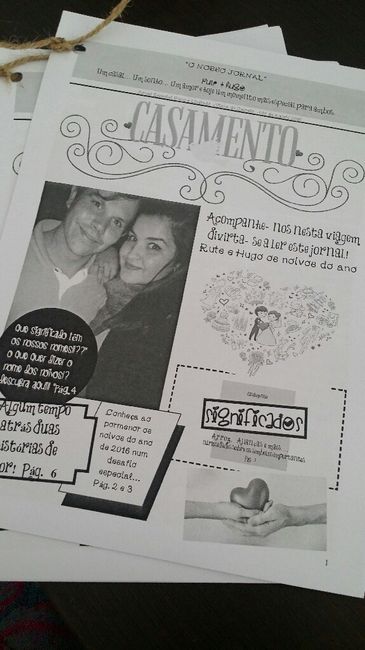 "O NOSSO JORNAL"
Rute + Hugo
Um casal... Um sonho... Um amor e hoje
CASAMENTO
Acompanhe- nos nesta viagem
divirta- se a ler este jornal!
Rute e Hugo os noivos do ano
Que significado têm
os nossos nomes!??
O que quer dizer o
nome dos noivos?
Descubra aqui! Pág. 4
Algum tempo
atrás duas
istórias de
or! Pág. 6
Conheça ao
pormenor os
noivos do ano
de 2016 num
desafio
especial...
Pág. 2 e 3
significados
Arroz,
1